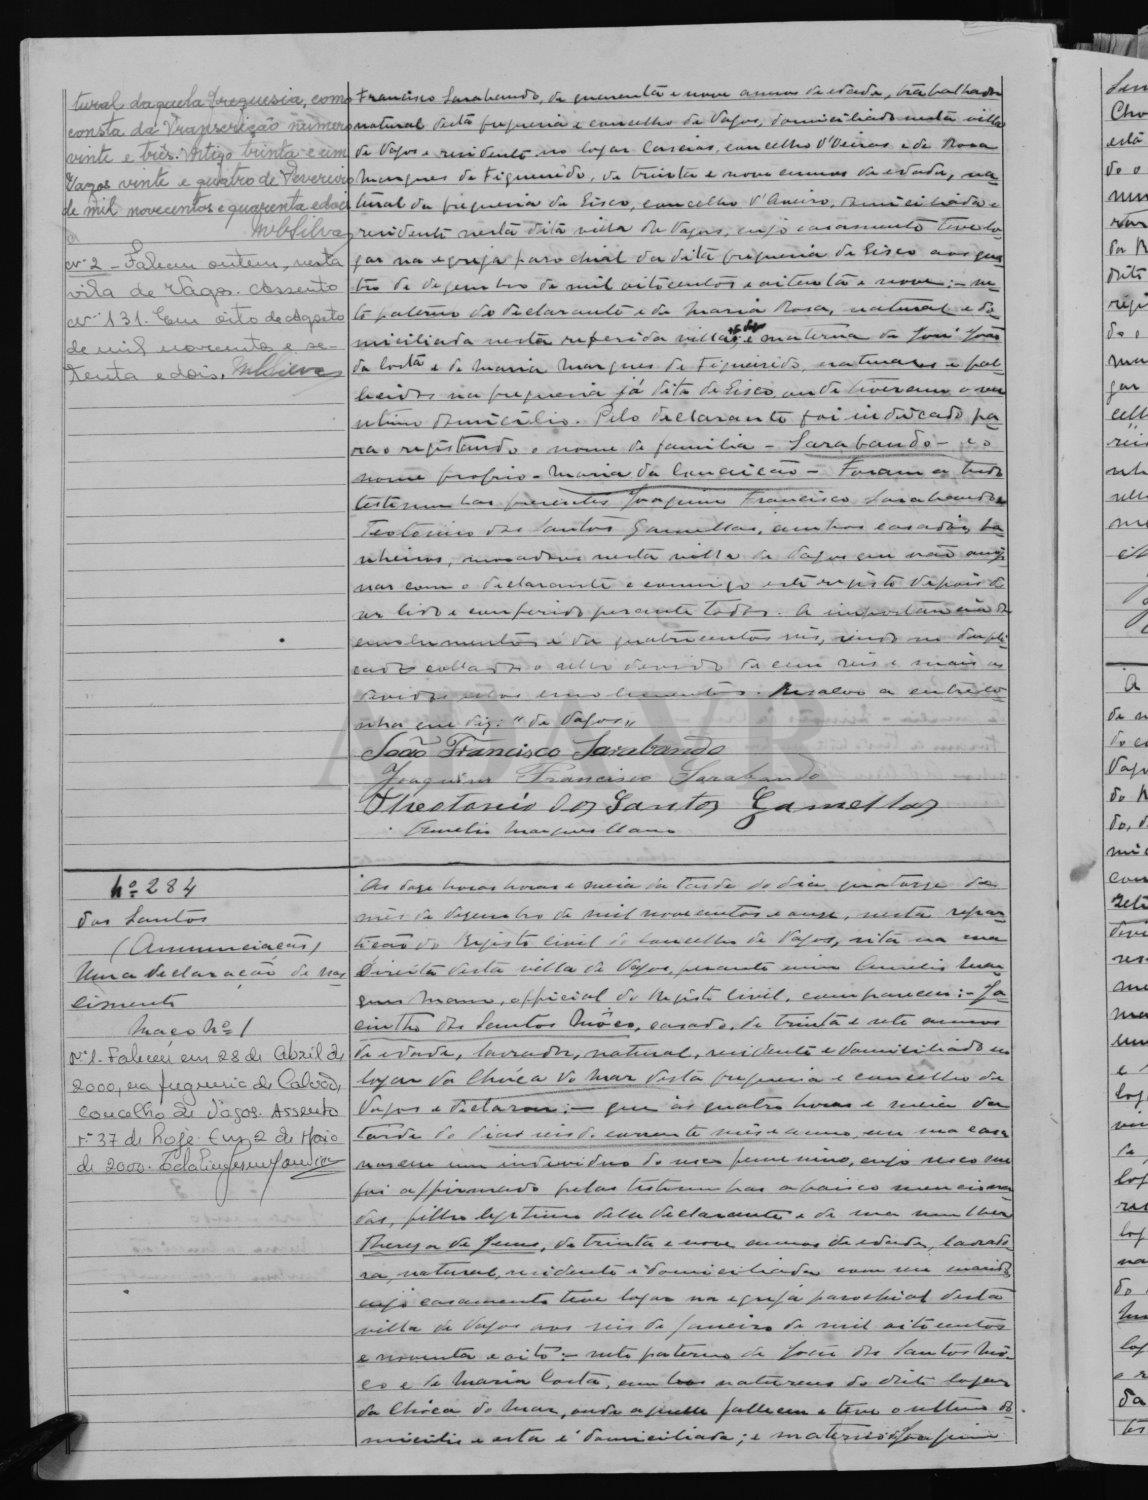 tural daquela freguesia, como
consta da Transcrição número
vinte e três. Artigo trinta e um
Vagos vinte e quatro de Fevereiro
de mil novecentos e quarenta e dois
MBSilva
Nº 2 - Faleceu ontem, nesta
vila de Vagos. Assento
nº 131. Em oito de Agosto
de mil novecentos e se-
tenta e dois. MBSilva
Francisco Sarabando, de quarenta e nove annos de edade, trabalhador
natural desta freguesia e concelho de Vagos, domiciliado nesta villa
de Vagos e residente no logar Caseias, concelho d'Oeiras e de Rosa
Marques de Figueirêdo, de trinta e nove annos de edade, na-
tural da freguesia de Eisco, concelho d'Aveiro, domiciliada e
residente nesta dita villa de Vagos, cujo casamento teve lo-
gar na egreja parochial da dita freguesia de Eisco aos qua-
tro de dezembro de mil oitocentos e oitenta e nove; — ne-
to paterno do declarante e de Maria Rosa, natural e do-
miciliada nesta referida villa de Vagos, e materna de José João
da Costa e de Maria Marques de Figueirêdo, naturaes e fal-
lecidos na freguesia já dita de Eisco, onde tiveram o seu
ultimo domicilio. Pelo declarante foi indicado pa-
ra o registando o nome de familia - Sarabando - e o
nome proprio - Maria da Conceição - Foram a tudo
testemunhas presentes Joaquim Francisco Sarabando e
Teotonio dos Santos Gamellas, ambos casados,
moradores nesta villa de Vagos que vão assig-
nar com o declarante e commigo este registo depois de
ser lido e conferido perante todos. A importancia de
emolumentos é de quatrocentos reis, sendo no dupli-
cado collado o sello devido de cem reis e mais os
devidos pelos emolumentos. Resalvo a entreli-
nha que diz: "de Vagos"
João Francisco Sarabando
Joaquim Francisco Sarabando
Theotonio dos Santos Gamellas
Aurelio Marques Mano
ADAVR
Nº 284
dos Santos
(Annunciação)
Uma declaração de nas-
cimento
Maço Nº 1
Nº 1. Faleceu em 28 de Abril de
2000, na freguesia de Calvão,
concelho de Vagos. Assento
nº 37 de hoje. Em 2 de Maio
de 2000.
As doze horas horas e meia da tarde do dia quatorze do
mês de dezembro de mil novecentos e onze, nesta repar-
tição do Registo Civil do concelho de Vagos, sita na rua
Direita desta villa de Vagos, perante mim Aurelio Mar-
ques Mano, official do Registo Civil, compareceu: — Ja-
cintho dos Santos Môço, casado, de trinta e sete annos
de edade, lavrador, natural, residente e domiciliado no
logar da Chôca do Mar desta freguesia e concelho de
Vagos e declarou: — que ás quatro horas e meia da
tarde do dia seis do corrente mês e anno, em sua casa
nasceu um individuo do sexo femenino, cujo sexo me
foi affirmado pelas testemunhas abaixo menciona-
das, filho legitimo delle declarante e de sua mulher
Thereza de Jesus, de trinta e nove annos de edade, lavrado-
ra, natural, residente e domiciliada com seu marido,
cujo casamento teve logar na egreja parochial desta
villa de Vagos aos seis de janeiro de mil oitocentos
e noventa e oito: — neto paterno de José dos Santos Mô-
ço e de Maria Costa, ambos naturaes do dito logar
da Chôca do Mar, onde aquelle falleceu e teve o ultimo do-
micilio e esta é domiciliada; e materno de Joaquim